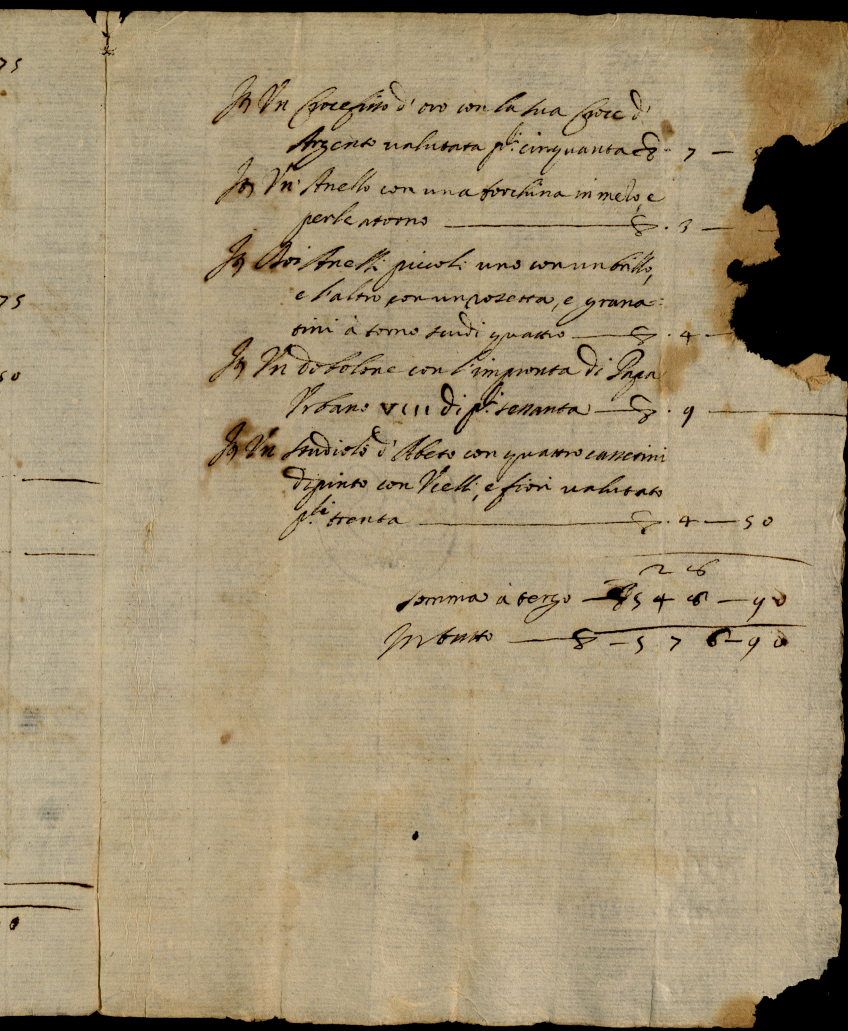 75
It Un Crocefisso d'oro con la sua Croce d'
Argento valutata p.li cinquanta ∇ · 7 —
It Un Anello con una torchina in mezo, e
perle atorno — ∇ · 3 —
It Doi Anelli piccoli uno con un brillo,
75
e l'altro con un rozetta, e grana:
tini à torno scudi quattro — ∇ · 4 —
It Un dobolone con l'impronta di Papa
50
Urbano VIII di p.li sessanta — ∇ · 9 —
It Un studiolo d'Abeto con quattro cassettini
dipinto con Ucelli, e fiori valutato
p.li trenta — ∇ · 4 — 50
2 8
Somma à tergo — 5 4 8 — 90
In tutto — ∇ — 5 7 6 — 90
0